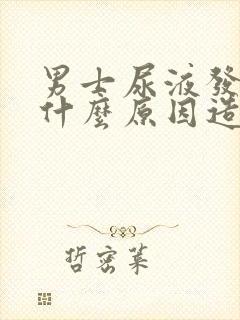 男士尿液發
什麼原因造
哲密某